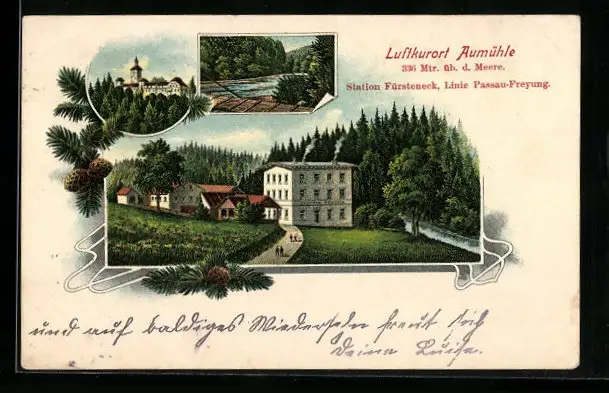 Luftkurort Aumühle
336 Mtr. üb. d. Meere.
Station Fürsteneck, Linie Passau-Freyung.
und auf baldiges Wiedersehn freut sich
Deine Luise.